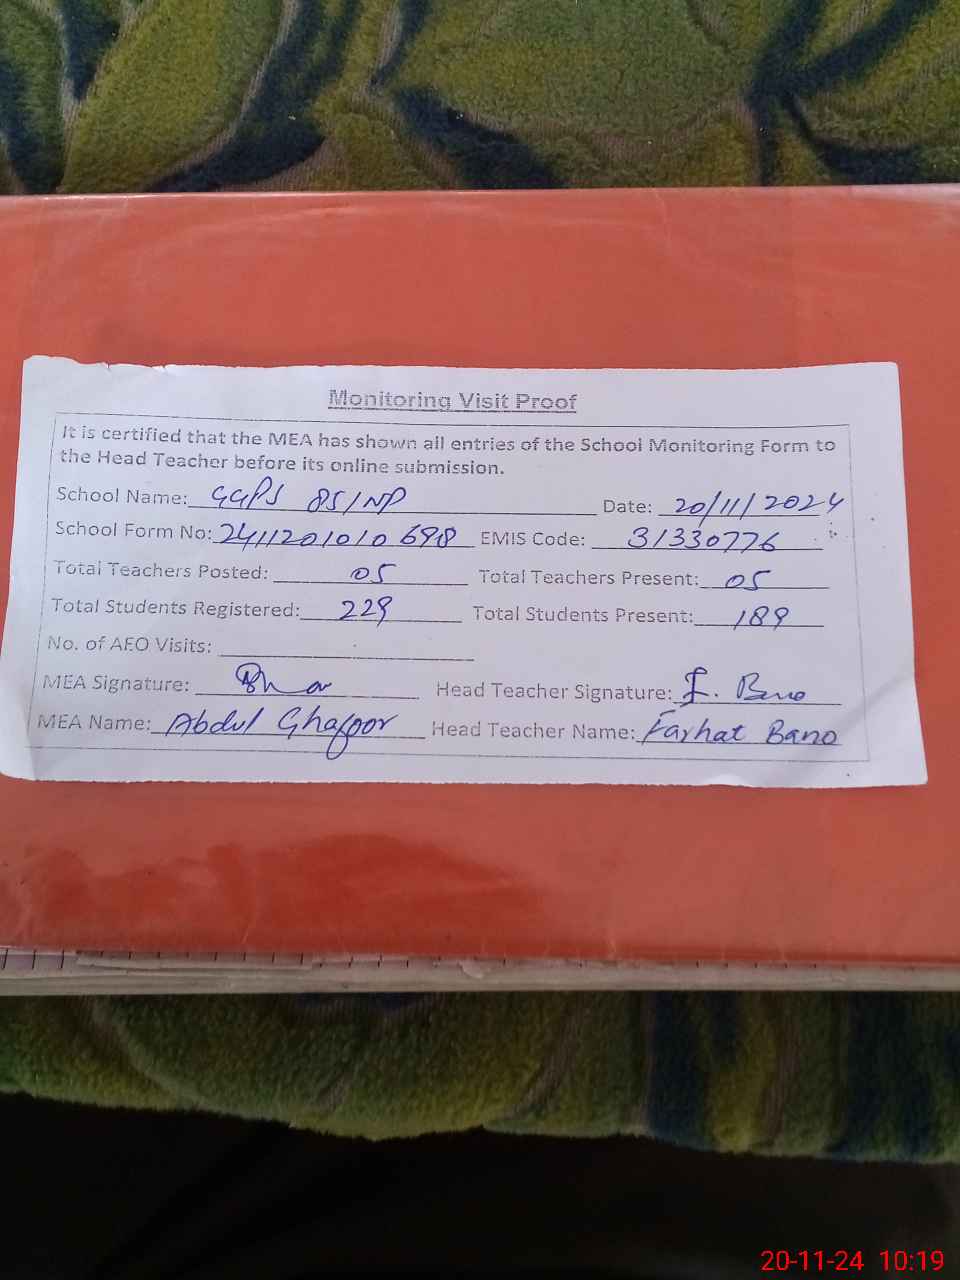 Monitoring Visit Proof
It is certified that the MEA has shown all entries of the School Monitoring Form to
the Head Teacher before its online submission.
School Name: GGPS 85/NP Date: 20/11/2024
School Form No: 2411201010698 EMIS Code: 31330776
Total Teachers Posted: 05 Total Teachers Present: 05
Total Students Registered: 229 Total Students Present: 189
No. of AEO Visits:
MEA Signature: Head Teacher Signature: F. Bano
MEA Name: Abdul Ghafoor Head Teacher Name: Farhat Bano
20-11-24 10:19